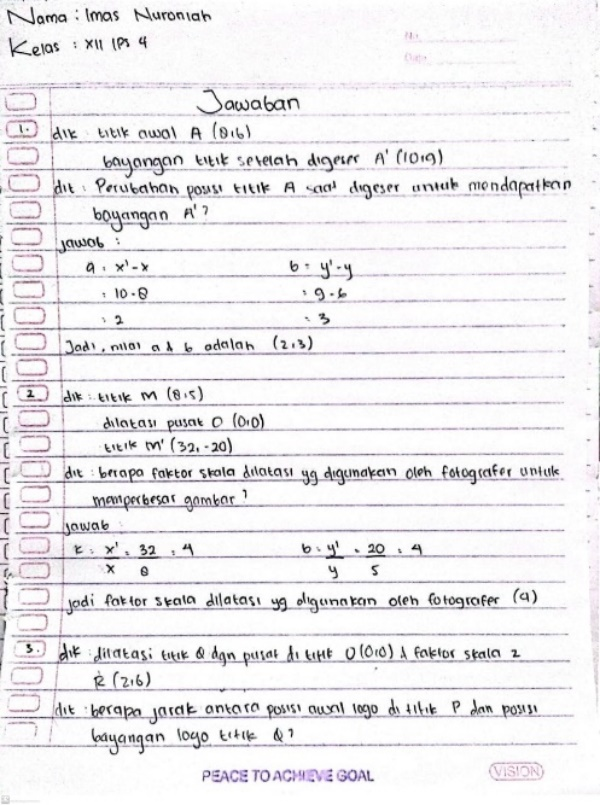 Nama : Imas Nuroniah
Kelas : XII IPS 4
No.
Date
Jawaban
1. dik : titik awal A (8,6)
bayangan titik setelah digeser A' (10,9)
dit : Perubahan posisi titik A saat digeser untuk mendapatkan
bayangan A'?
jawab :
a = x'-x b = y'-y
= 10-8 = 9-6
= 2 = 3
Jadi, nilai a & b adalah (2,3)
2 dik : titik M (8,5)
dilatasi pusat O (0,0)
titik M' (32,-20)
dit : berapa faktor skala dilatasi yg digunakan oleh fotografer untuk
memperbesar gambar?
jawab :
k = x'/x = 32/8 = 4 b = y'/y = 20/5 = 4
jadi faktor skala dilatasi yg digunakan oleh fotografer (4)
3. dik : dilatasi titik Q dgn pusat di titik O (0,0) & faktor skala 2
R (2,6)
dit : berapa jarak antara posisi awal logo di titik P dan posisi
bayangan logo titik Q?
PEACE TO ACHIEVE GOAL
VISION